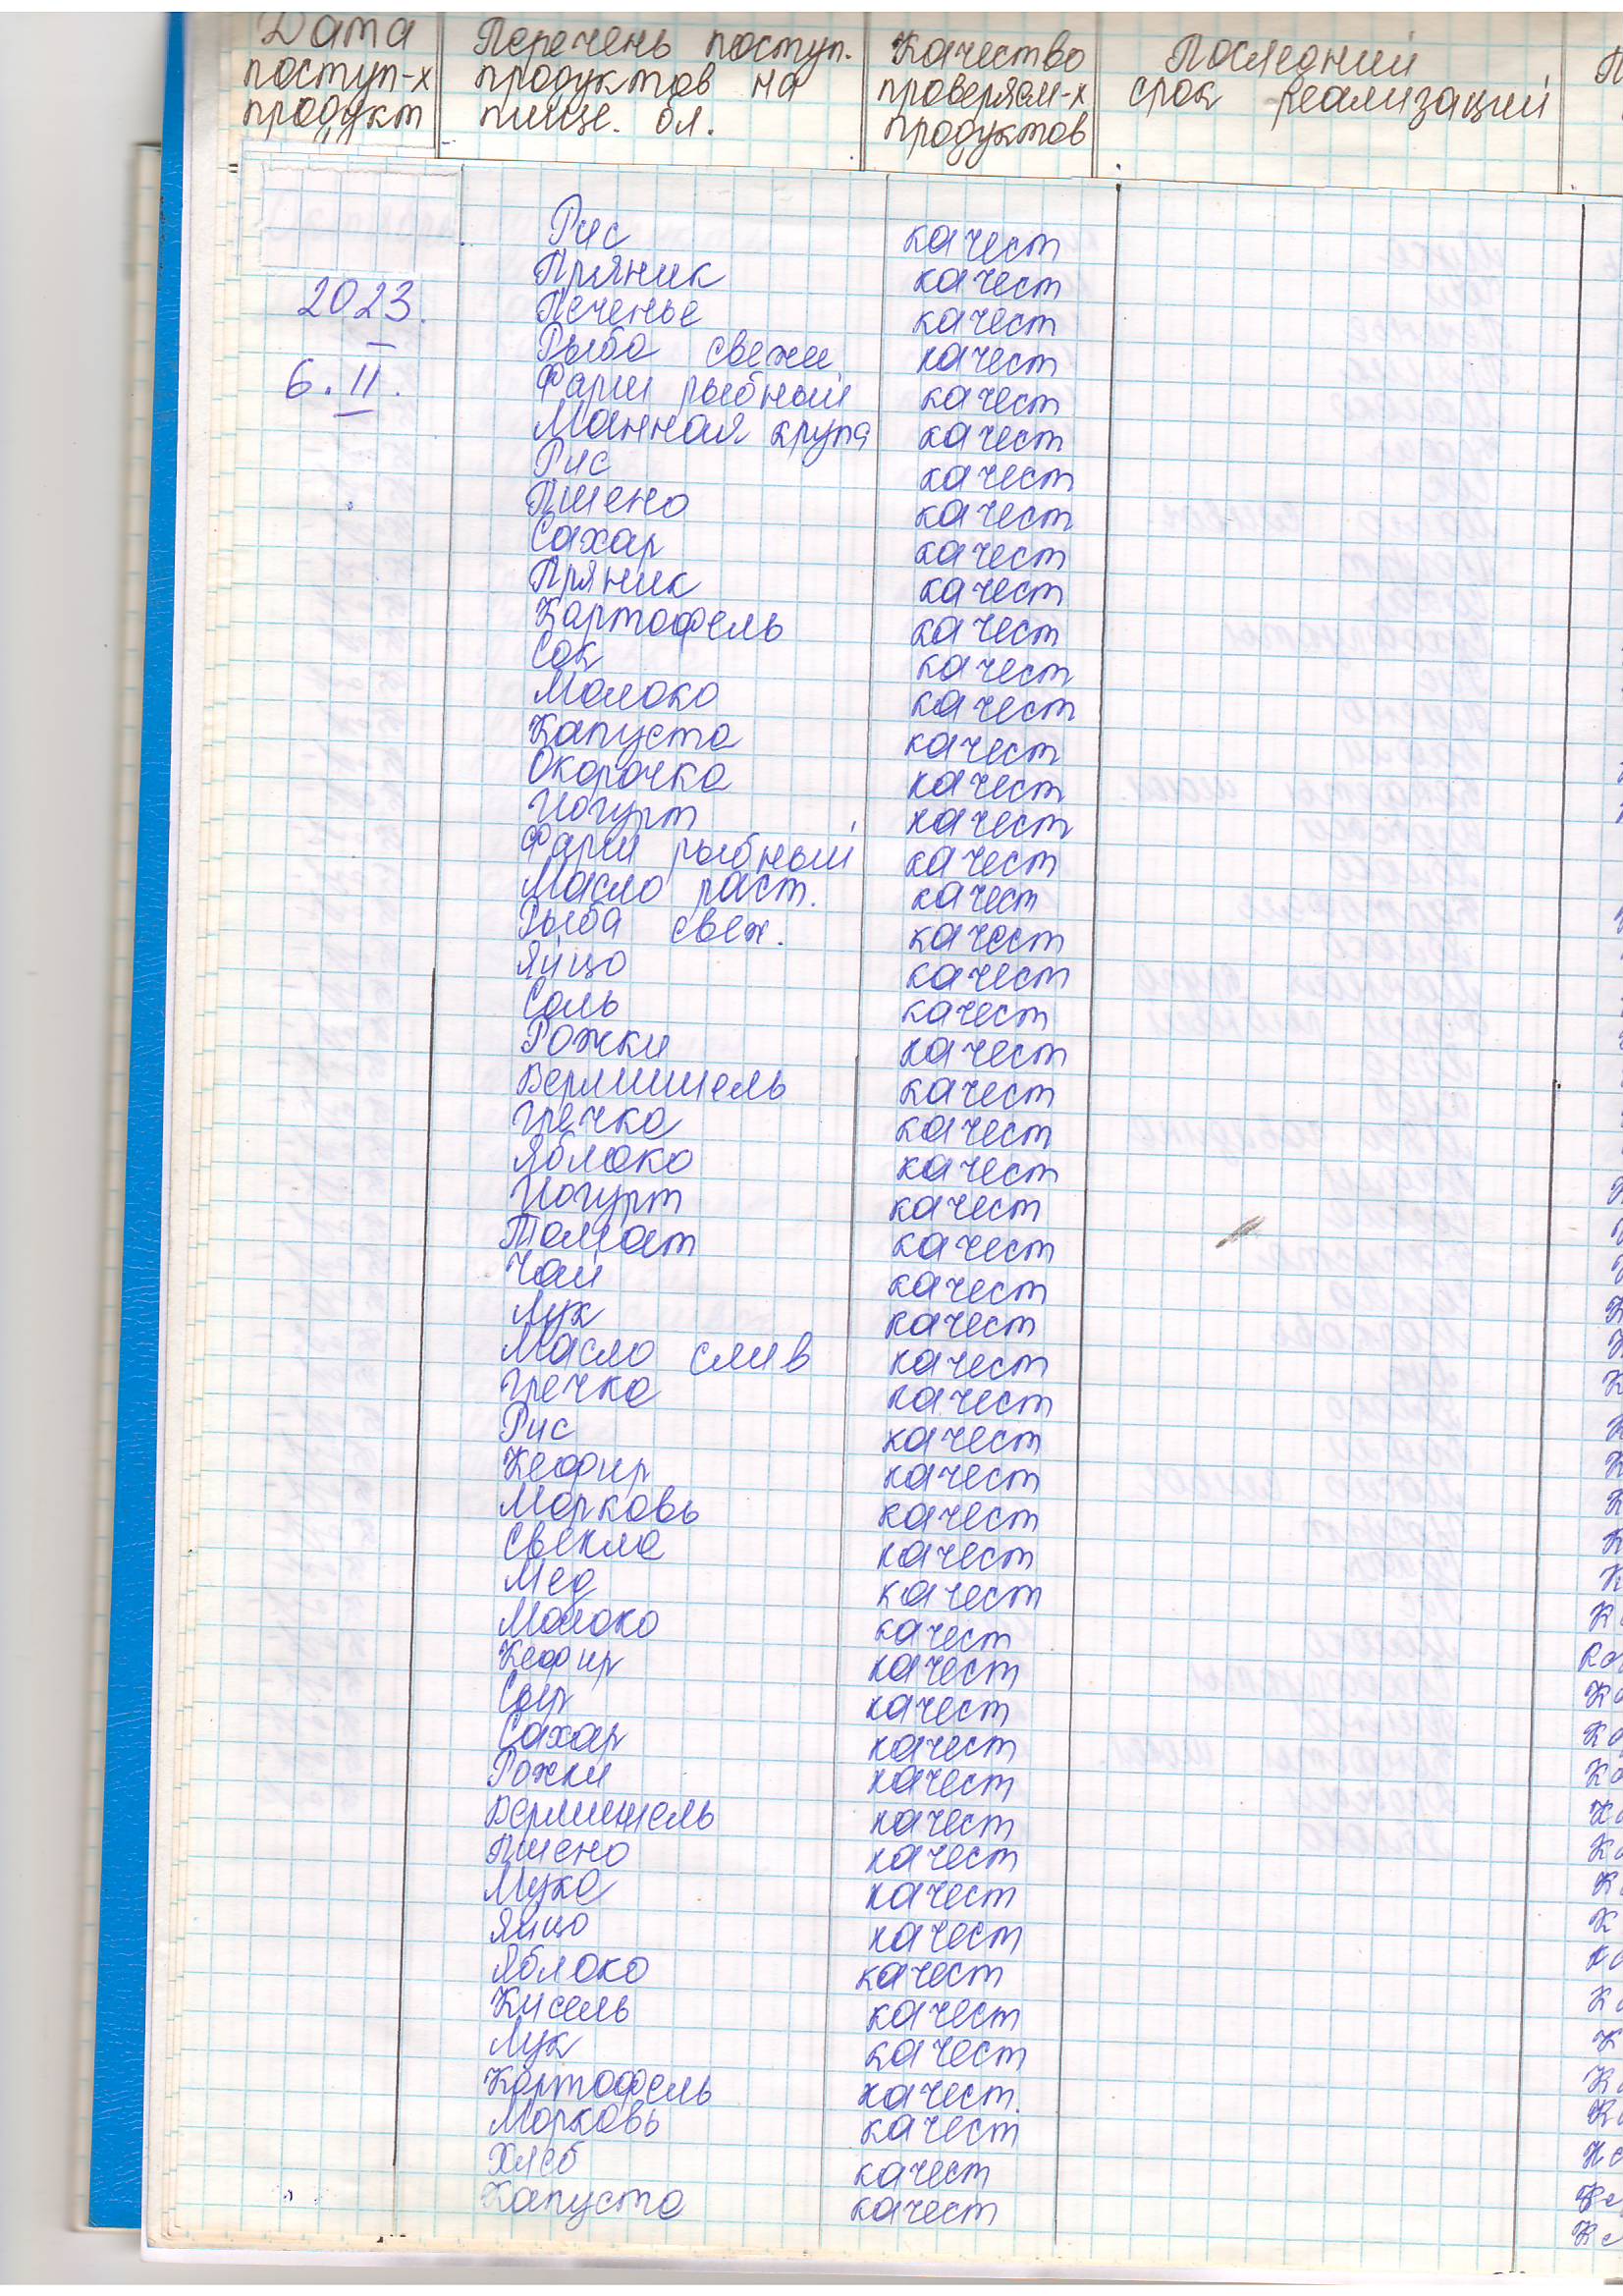 Дата поступ-х продукт
Перечень поступ. продуктов на пище. бл.
Качество проверяем-х продуктов
Последний срок реализации
Рис качест
Пряник качест
2023. Печенье качест
Рыба свежи качест
6.II. Фарш рыбный качест
Манная крупа качест
Рис качест
Пшено качест
Сахар качест
Пряник качест
Картофель качест
Сок качест
Молоко качест
Капуста качест
Окорочка качест
Йогурт качест
Фарш рыбный качест
Масло раст. качест
Рыба свеж. качест
Яйцо качест
Соль качест
Рожки качест
Вермишель качест
Гречка качест
Яблоко качест
Йогурт качест
Томат качест
Чай качест
Лук качест
Масло слив качест
Гречка качест
Рис качест
Кефир качест
Морковь качест
Свекла качест
Мед качест
Молоко качест
Кефир качест
Сыр качест
Сахар качест
Рожки качест
Вермишель качест
Пшено качест
Мука качест
Яйцо качест
Яблоко качест
Кисель качест
Лук качест
Картофель качест.
Морковь качест
Хлеб качест
Капуста качест